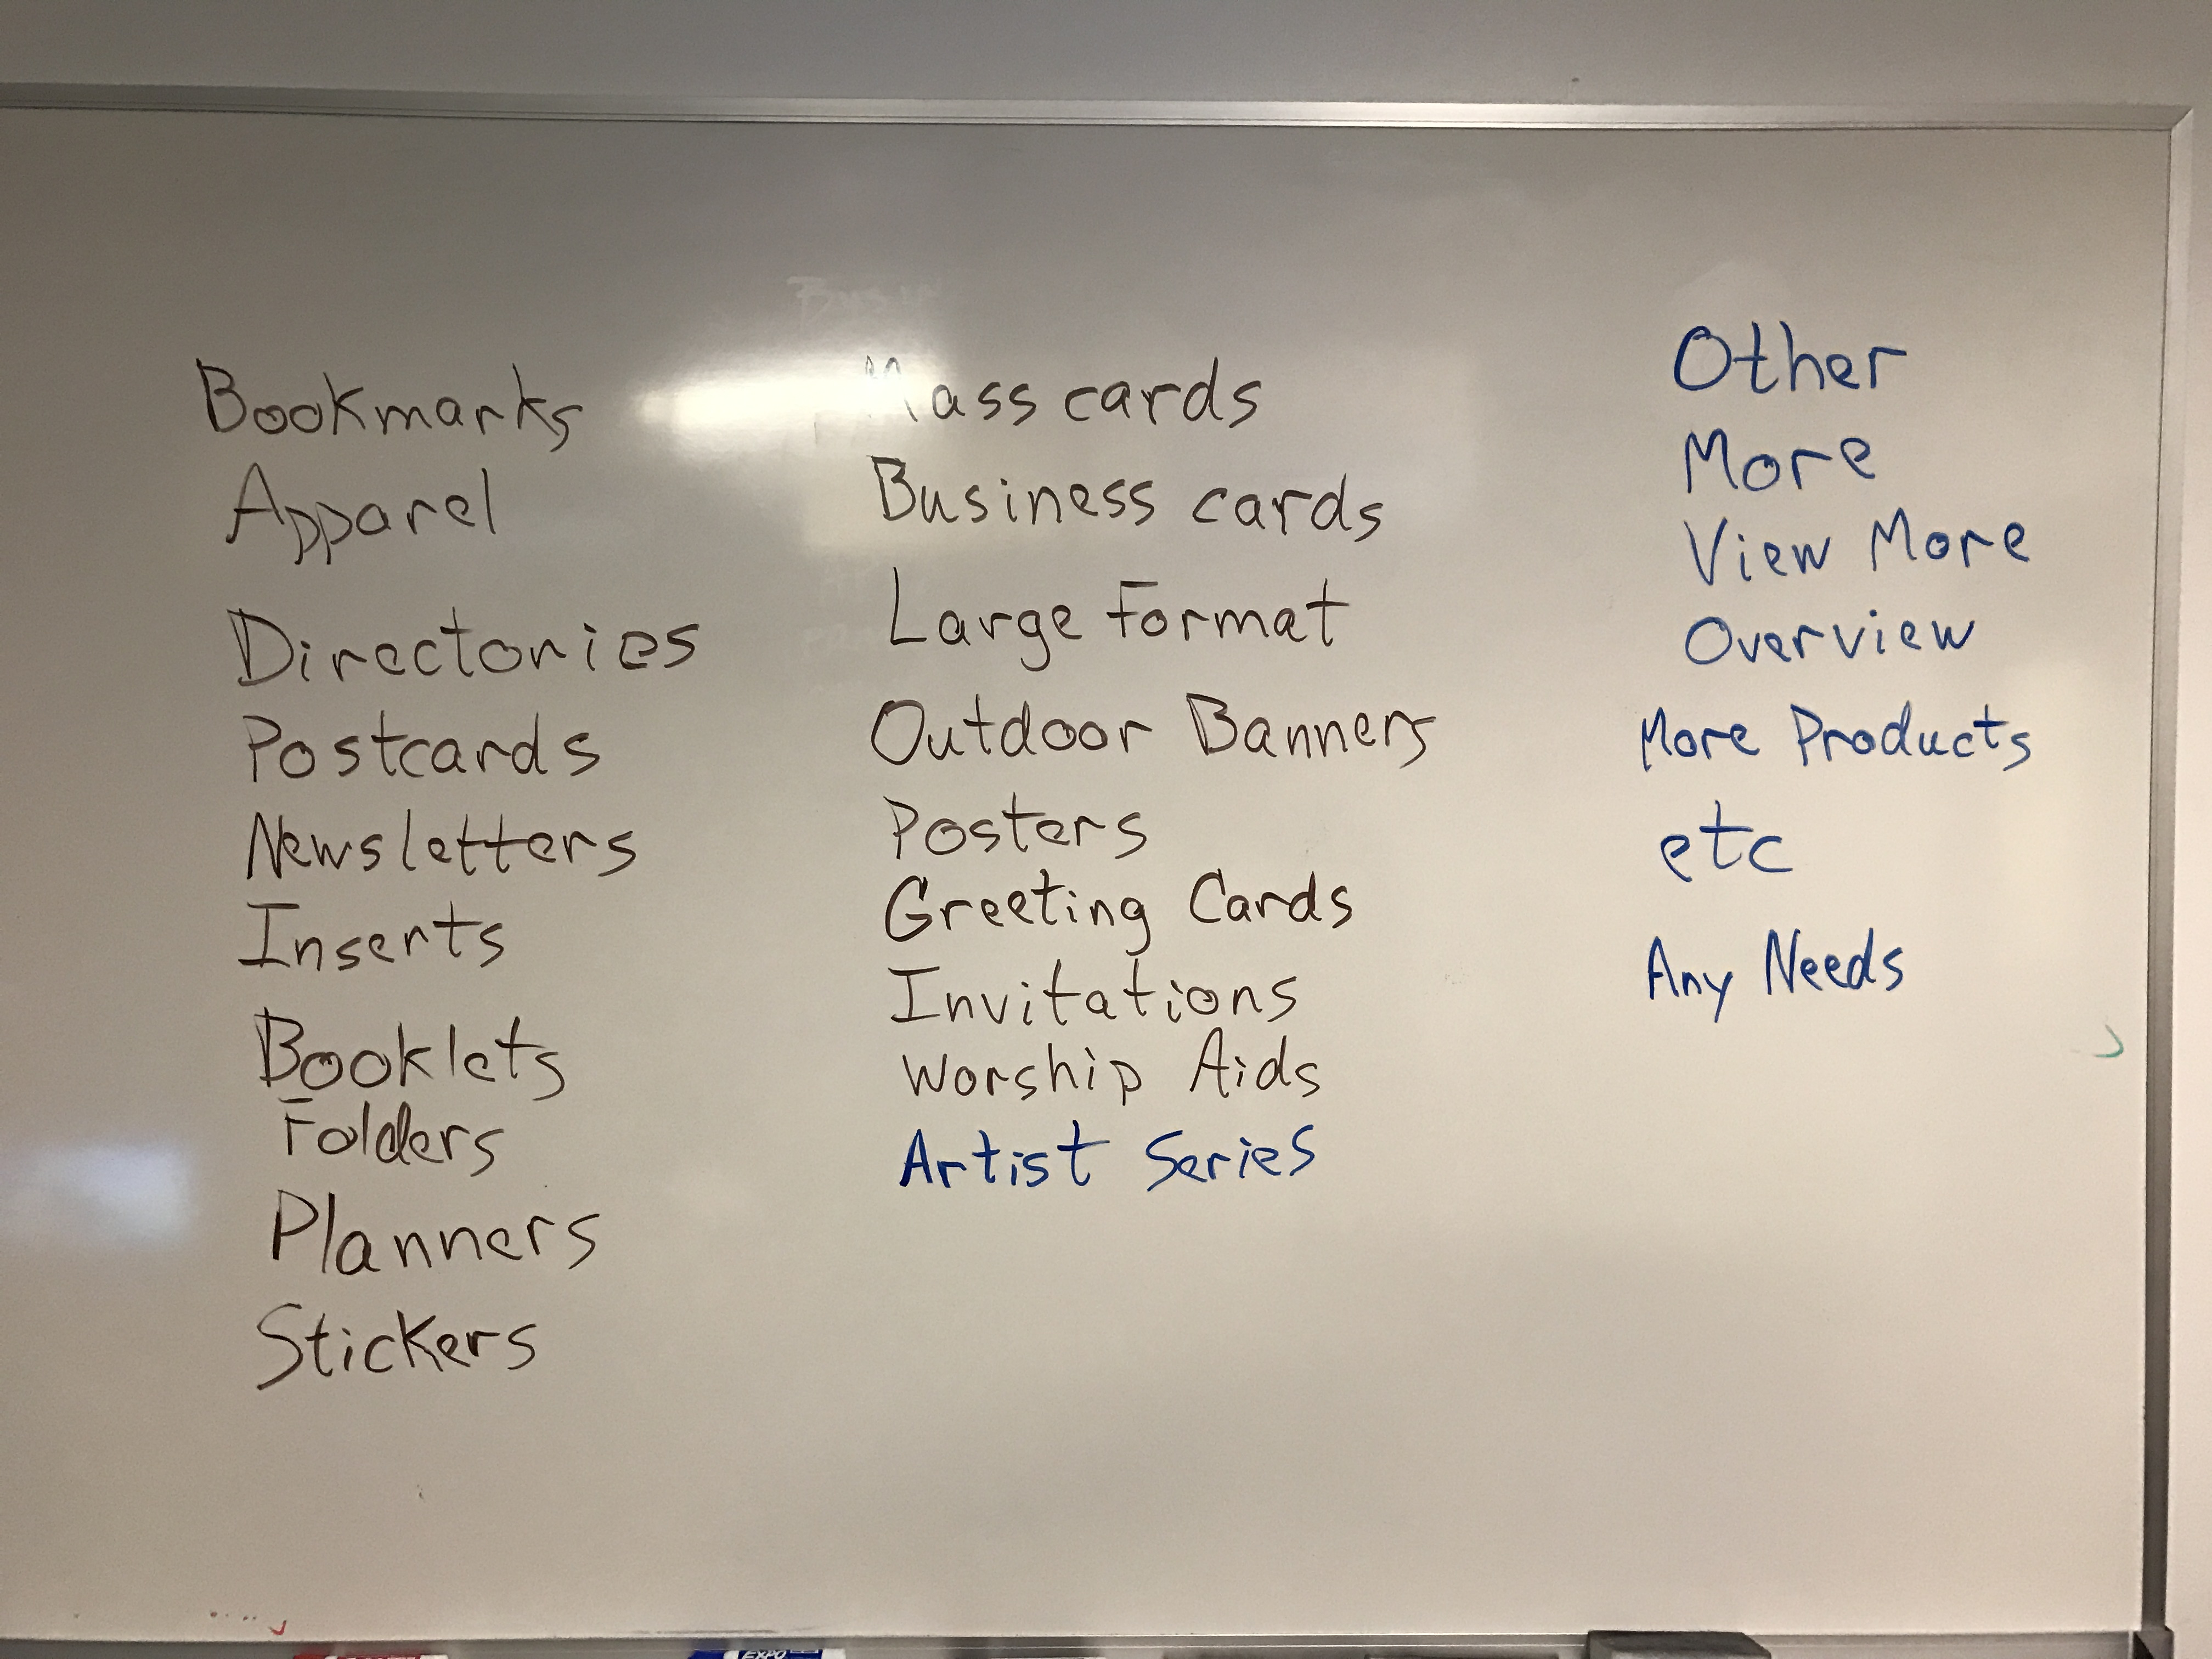 Bookmarks
Apparel
Directories
Postcards
Newsletters
Inserts
Booklets
Folders
Planners
Stickers
Mass cards
Business cards
Large Format
Outdoor Banners
Posters
Greeting Cards
Invitations
Worship Aids
Artist Series
Other
More
View More
Overview
More Products
etc
Any Needs
EXPO